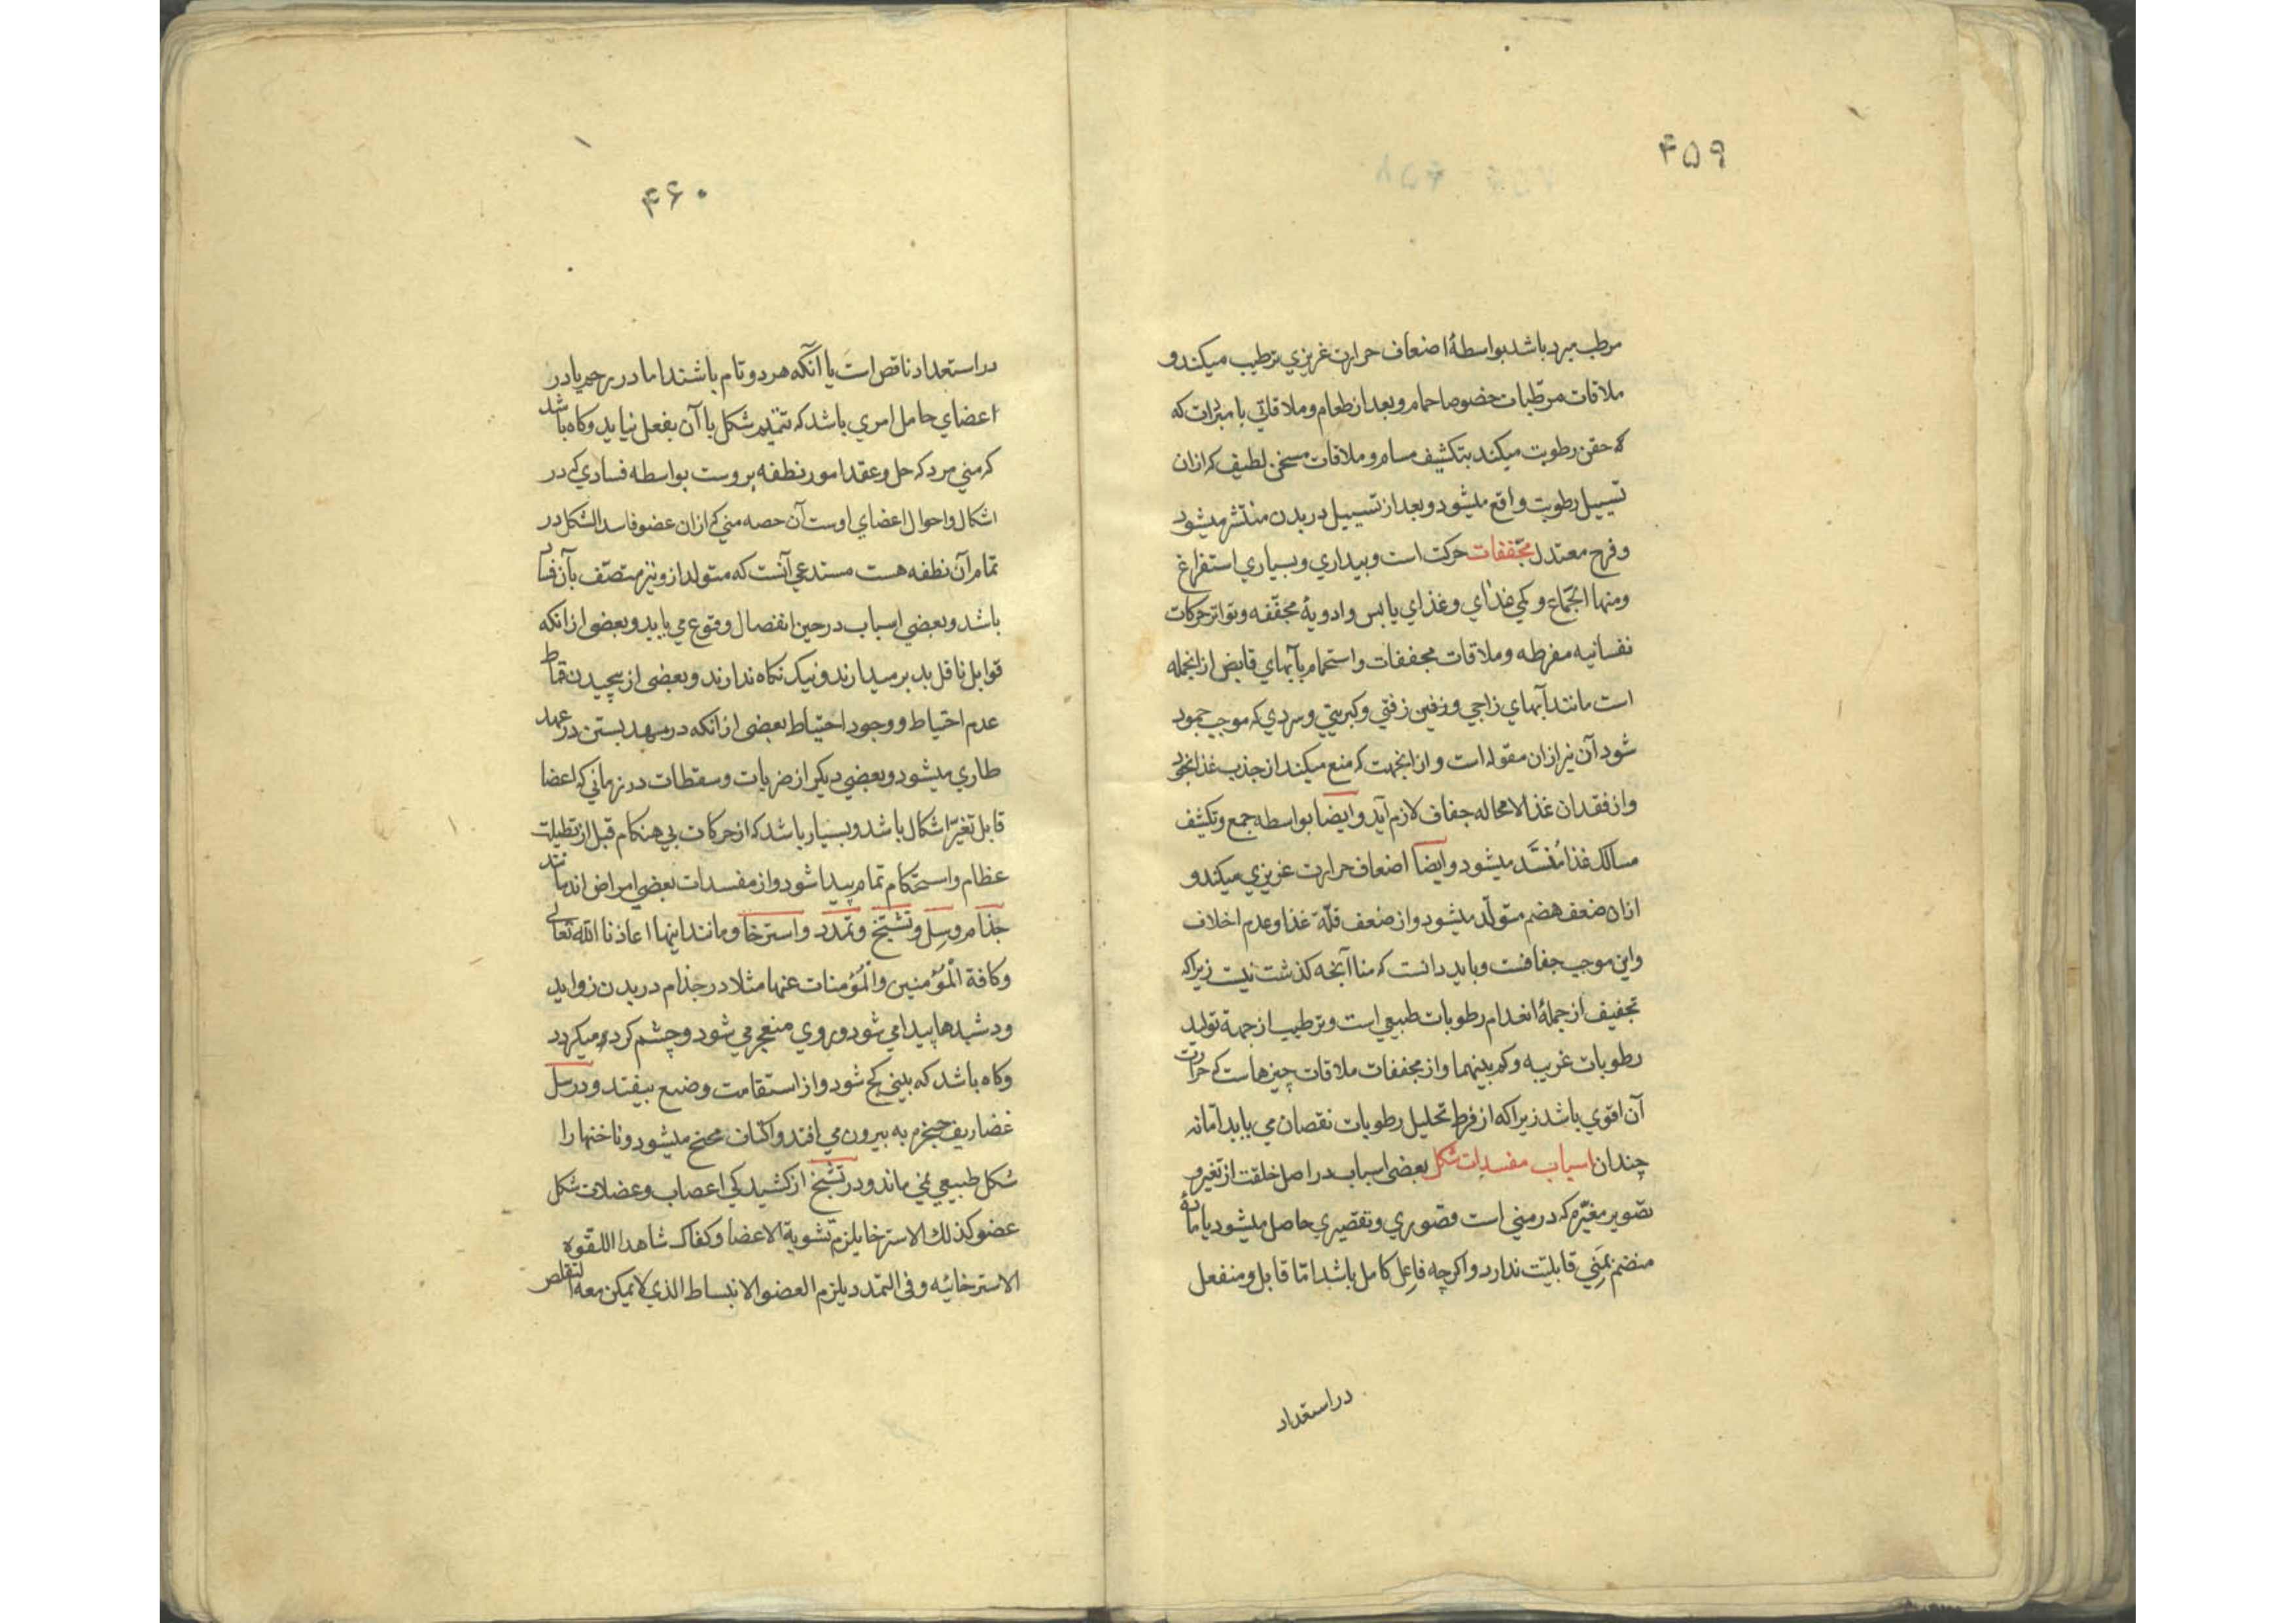 ۴۵۹
مرطب مبرد باشد بواسطهٔ اضعاف حرارت غریزي ترطیب میکند و
ملاقات مرطّبات خصوصا حمام و بعد از طعام و ملاقاتي با مبرّدات که
که حقن رطوبت میکند بتکثیف مسام و ملاقات مسخن لطیف که ازان
تسییل رطوبت واقع میشود و بعد از تسییل در بدن منتشر میشود
و فرح معتدل مجّففات حرکت است و بیداري و بسیاري استفراغ
ومنها الجّماع و کمي غذاي و غذاي یابس و ادویهٔ مجفّفه و تواتر حرکات
نفسانیه مفرطه و ملاقات مجففات و استحمام بآبهاي قابض ازانجمله
است مانند آبهاي زاجي و زفتي و کبریتي و سردي که موجب جمود
شود آن نیز ازان مقوله است و ازانجهت که منع میکند از جذب غذا بخود
و از فقدان غذا لامحاله جفاف لازم آید و ایضا بواسطه جمع و تکثف
مسالک غذا مُنسَّد میشود و ایضا اضعاف حرارت غریزي میکند و
ازان ضعف هضم متولّد میشود و از ضعف قلّة غذا و عدم اخلاف
واین موجب جفافست و باید دانست که منا آنچه کذشت نیست زیراکه
تجفیف از جملهٔ انعدام رطوبات طبیعي است و ترطیب از جهة تولید
رطوبات غریبه و کم بینهما و از مجففات ملاقات چیزهاست که حرارت
آن اقوي باشد زیراکه از فرط تحلیل رطوبات نقصان مي یابد امّا نه
چندان اسباب مفسدات شکل بعضي اسباب در اصل خلقت از تغیر و
تصویر مغیّره که در مني است و قصوري و تقصیري حاصل میشود یا مادّهٔ
منضم بمَني قابلیّت ندارد و اکرچه فاعِل کامل باشد امّا قابل و منفعل
در استعداد
۴۶۰
در استعداد ناقص است یا آنکه هردو تام باشند اما در رحم یا در
اعضاي حامل امري باشد که تتمیم شکل با آن بفعل نیاید و کاه باشد
که مني مرد که حل و عقد امور نطفه بروست بواسطه فسادي که در
اشکال و احوال اعضاي اوست آن حصه مني که ازان عضو فاسد الشکل در
تمام آن نطفه هست مستدعي آنست که متولد ازو نیز متصّف بآن فساد
باشد و بعضي اسباب در حین انفصال وقوع مي یابد و بعضي از انکه
قوابل ناقل بد برمیدارند و نیک نکاه ندارند و بعضي از پیچیدن قماط
عدم احتیاط و وجود احتیاط بعضي از انکه در مهد بستن در عهد
طاري میشود و بعضي دیکر از ضربات و سقطات در زماني که اعضا
قابل تغیّر اشکال باشد و بسیار باشد که از حرکات بي هنکام قبل از
عظام و استحکام تمام پیدا شود و از مفسدات بعضي امراض اند مانند
جذام و سِل و تشنّج و تمدد و استرخا و مانند اینها اعاذنا الله تعالی
وکافة الْمُؤمنین والْمُؤمنات عنها مثلا در جذام در بدن زواید
و دشبدها پیدا مي شود و روي منعجر مي شود و چشم کرد میکردد
و کاه باشد که بیني کج شود و از استقامت وضع بیفتد و در سل
غضاریف حنجره به بیرون مي افتد و اکتاف مجنح میشود و ناخنها را
شکل طبیعي نمي ماند و در تشنّج از کشیدکي اعصاب و عضلات شکل
عضو کذلک الاسترخا یلزم تشویة الاعضا و کفاک شاهدا اللقوة
الاسترخائیه و في التمدد یلزم العضو الانبساط الذي لا یمکن معه التقلص